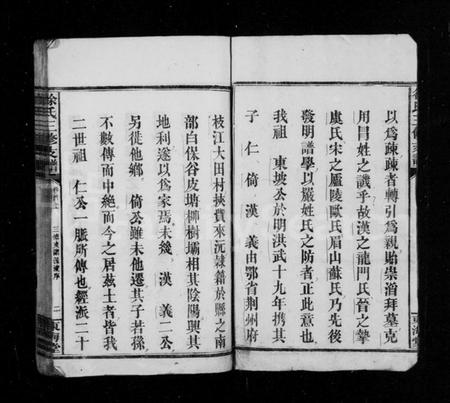 以爲疎疎者轉引爲親貽祟湣拜墓克
用冒姓之譏乎故漢之龍門氏晉之摯
虞氏宋之廬陵歐氏眉山蘇氏乃先後
發明譜學以嚴姓氏之防者正此意也
我祖 東坡公於明洪武十九年携其
子 仁 倚 漢 義由鄂省荆州府
枝江大田村挾貲來沅隷籍於縣之南
部白保谷皮塘柳樹壩相其陰陽興其
地利遂以爲家焉未幾 漢 義二公
另徙他鄉 倚公雖未他遷其子若孫
不數傳而中絶而今之居茲土者皆我
二世祖 仁公一脈所傳也經派二十
徐氏三修支譜
二
東海堂